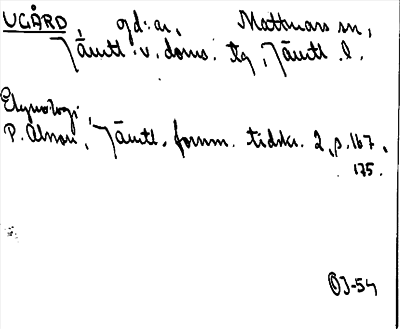 UGÅRD, gd:ar, Mattmars sn,
Jämtl. v. doms. tg, Jämtl. l.
Etymologi:
P. Alnœu, Jämtl. fornm. tidskr. 2, p. 167,
175.
OJ-54